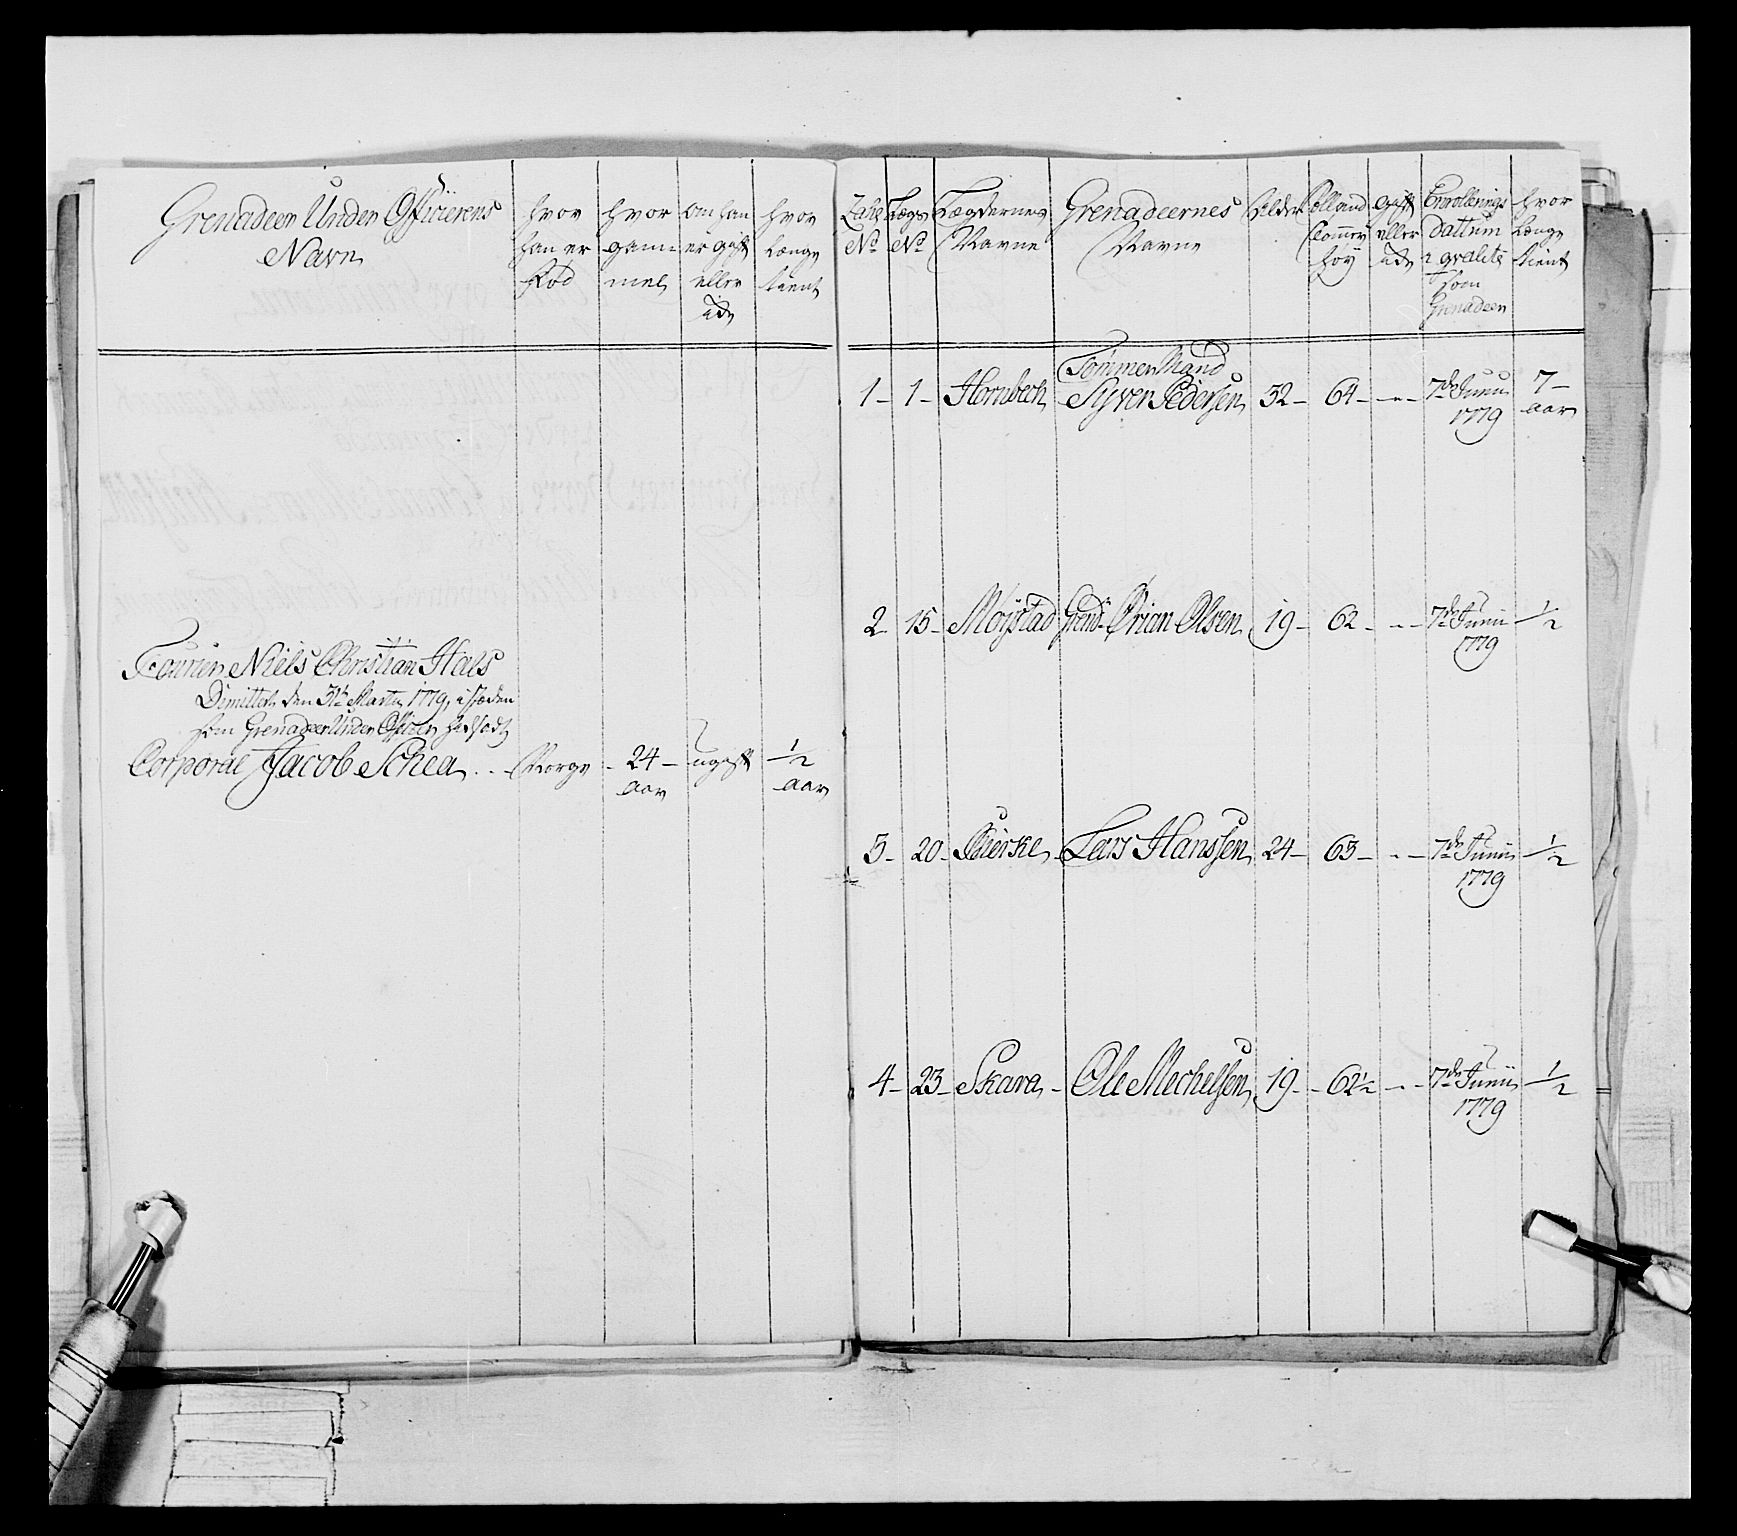 Grenadeer Under Officierens
Navn
hvor
han er
Fød
hvor
gam=
mel
om han
er gift
eller
icke
hvor
længe
tient
Fourier Niels Christian Hals
Dimittert den 31te Martz 1779, i steden
som Grenadeer Under Officer
Corporal Jacob Schea . . Norge - 24 - ugift 1/2
aar aar
Lægs
No No
Lægdernes
Navne
Grenadeernes
Navne
Alder
Tommer
høy
gift
eller
icke
Enrollerings
Dattum
i qvalite
som
Grenadeer
hvor
længe
tient
Tømmer Mand
1 - 1 - Hornbech Syver Pedersen 32 - 64 - - - 7de Junii 7 -
1779 aar
2 - 15 - Moystad Gren Ørian Olsen 19 - 62 - - - 7de Junii 1/2
1779
3 - 20 - Bierke Lars Hanssen 24 - 63 - - - 7de Junii 1/2
1779
4 - 23 - Skara - Ole Mechelsen 19 - 62 1/2 - - 7de Junii 1/2
1779